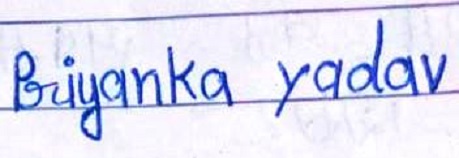 Priyanka yadav